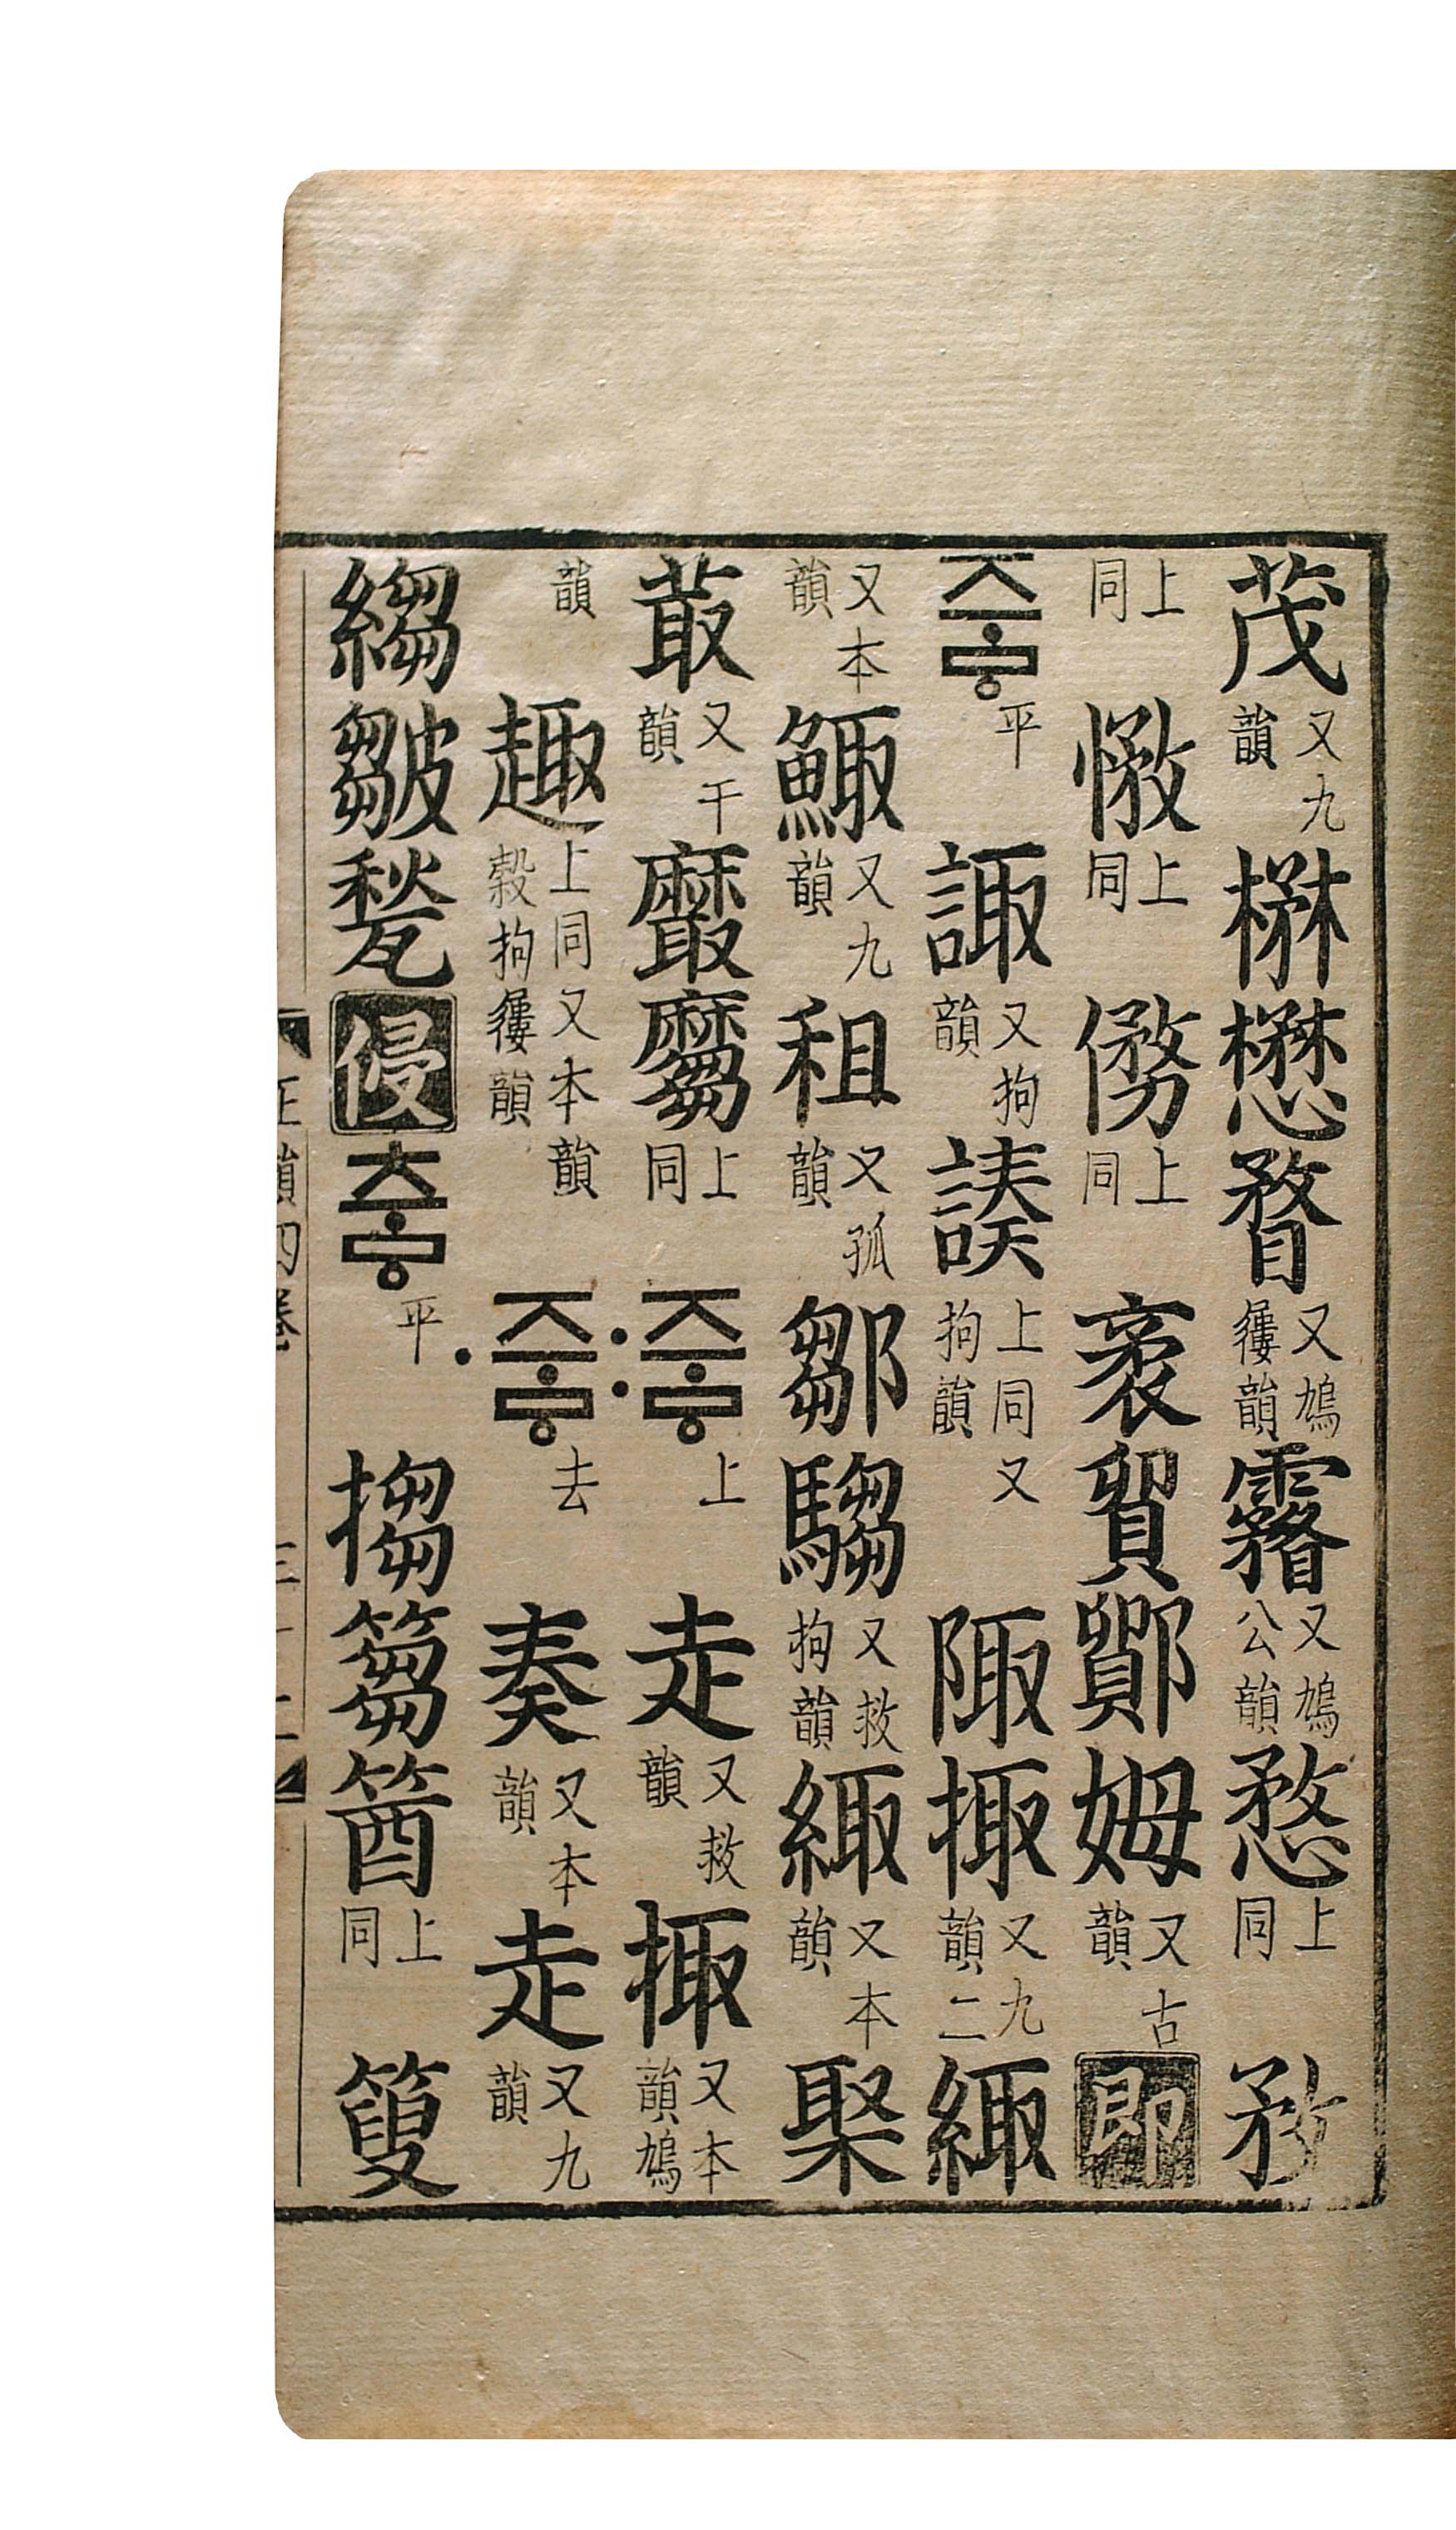 茂 又九韻 楙懋瞀 又鳩屨韻 霿 又鳩公韻 愗 上同
上同 上同 上同 袤貿鄮姆 又古韻 即
ᅎᅳᇢ 平 諏 又拘韻 上同又拘韻 陬掫 又九韻二 緅
又本韻 鯫 又九韻 租 又孤韻 鄒騶 又救拘韻 緅 又本韻 棸
菆 又干韻 黀 上同 ᅎᅳᇢ〯 上 走 又救韻 掫 又本韻鳩
韻 趣 上同又本韻穀拘屨韻 ᅎᅳᇢ〮 去 奏 又本韻 走 又九韻
縐皺甃 侵 ᅐᅳᇢ 平 搊篘 上同
正韻四卷